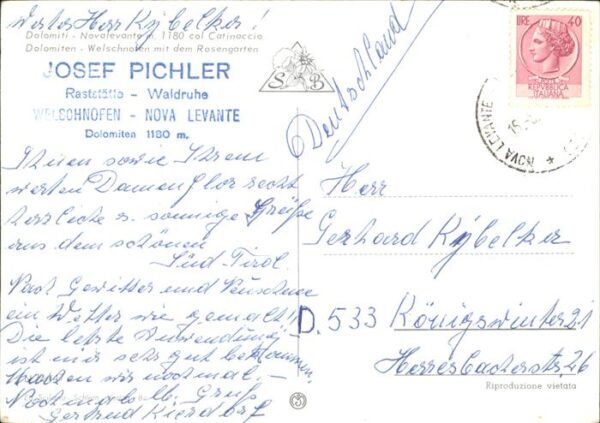 Werter Herr Kybelker!
Dolomiti - Novalevante m. 1180 col Catinaccio
Dolomiten - Welschnofen mit dem Rosengarten
JOSEF PICHLER
Raststätte - Waldruhe
WELSCHNOFEN - NOVA LEVANTE
Dolomiten 1180 m.
S B
Deutschland
LIRE 40
REPVBBLICA
ITALIANA
NOVA LEVANTE
Ihnen sowie Ihrem
werten Damenflor recht
herzliche u. sonnige Grüße
aus dem schönen
Süd Tirol.
Nach Gewitter und
ein Wetter wie gemalt!!
Die letzte Anwendung
ist mir sehr gut bekommen,
machen wir nochmal. -
Nochmals lb. Gruß
Gertrud Kierdorf
Herr
Gerhard Kybelker
D. 533 Königswinter 21
Herresbacherstr. 26
Riproduzione vietata